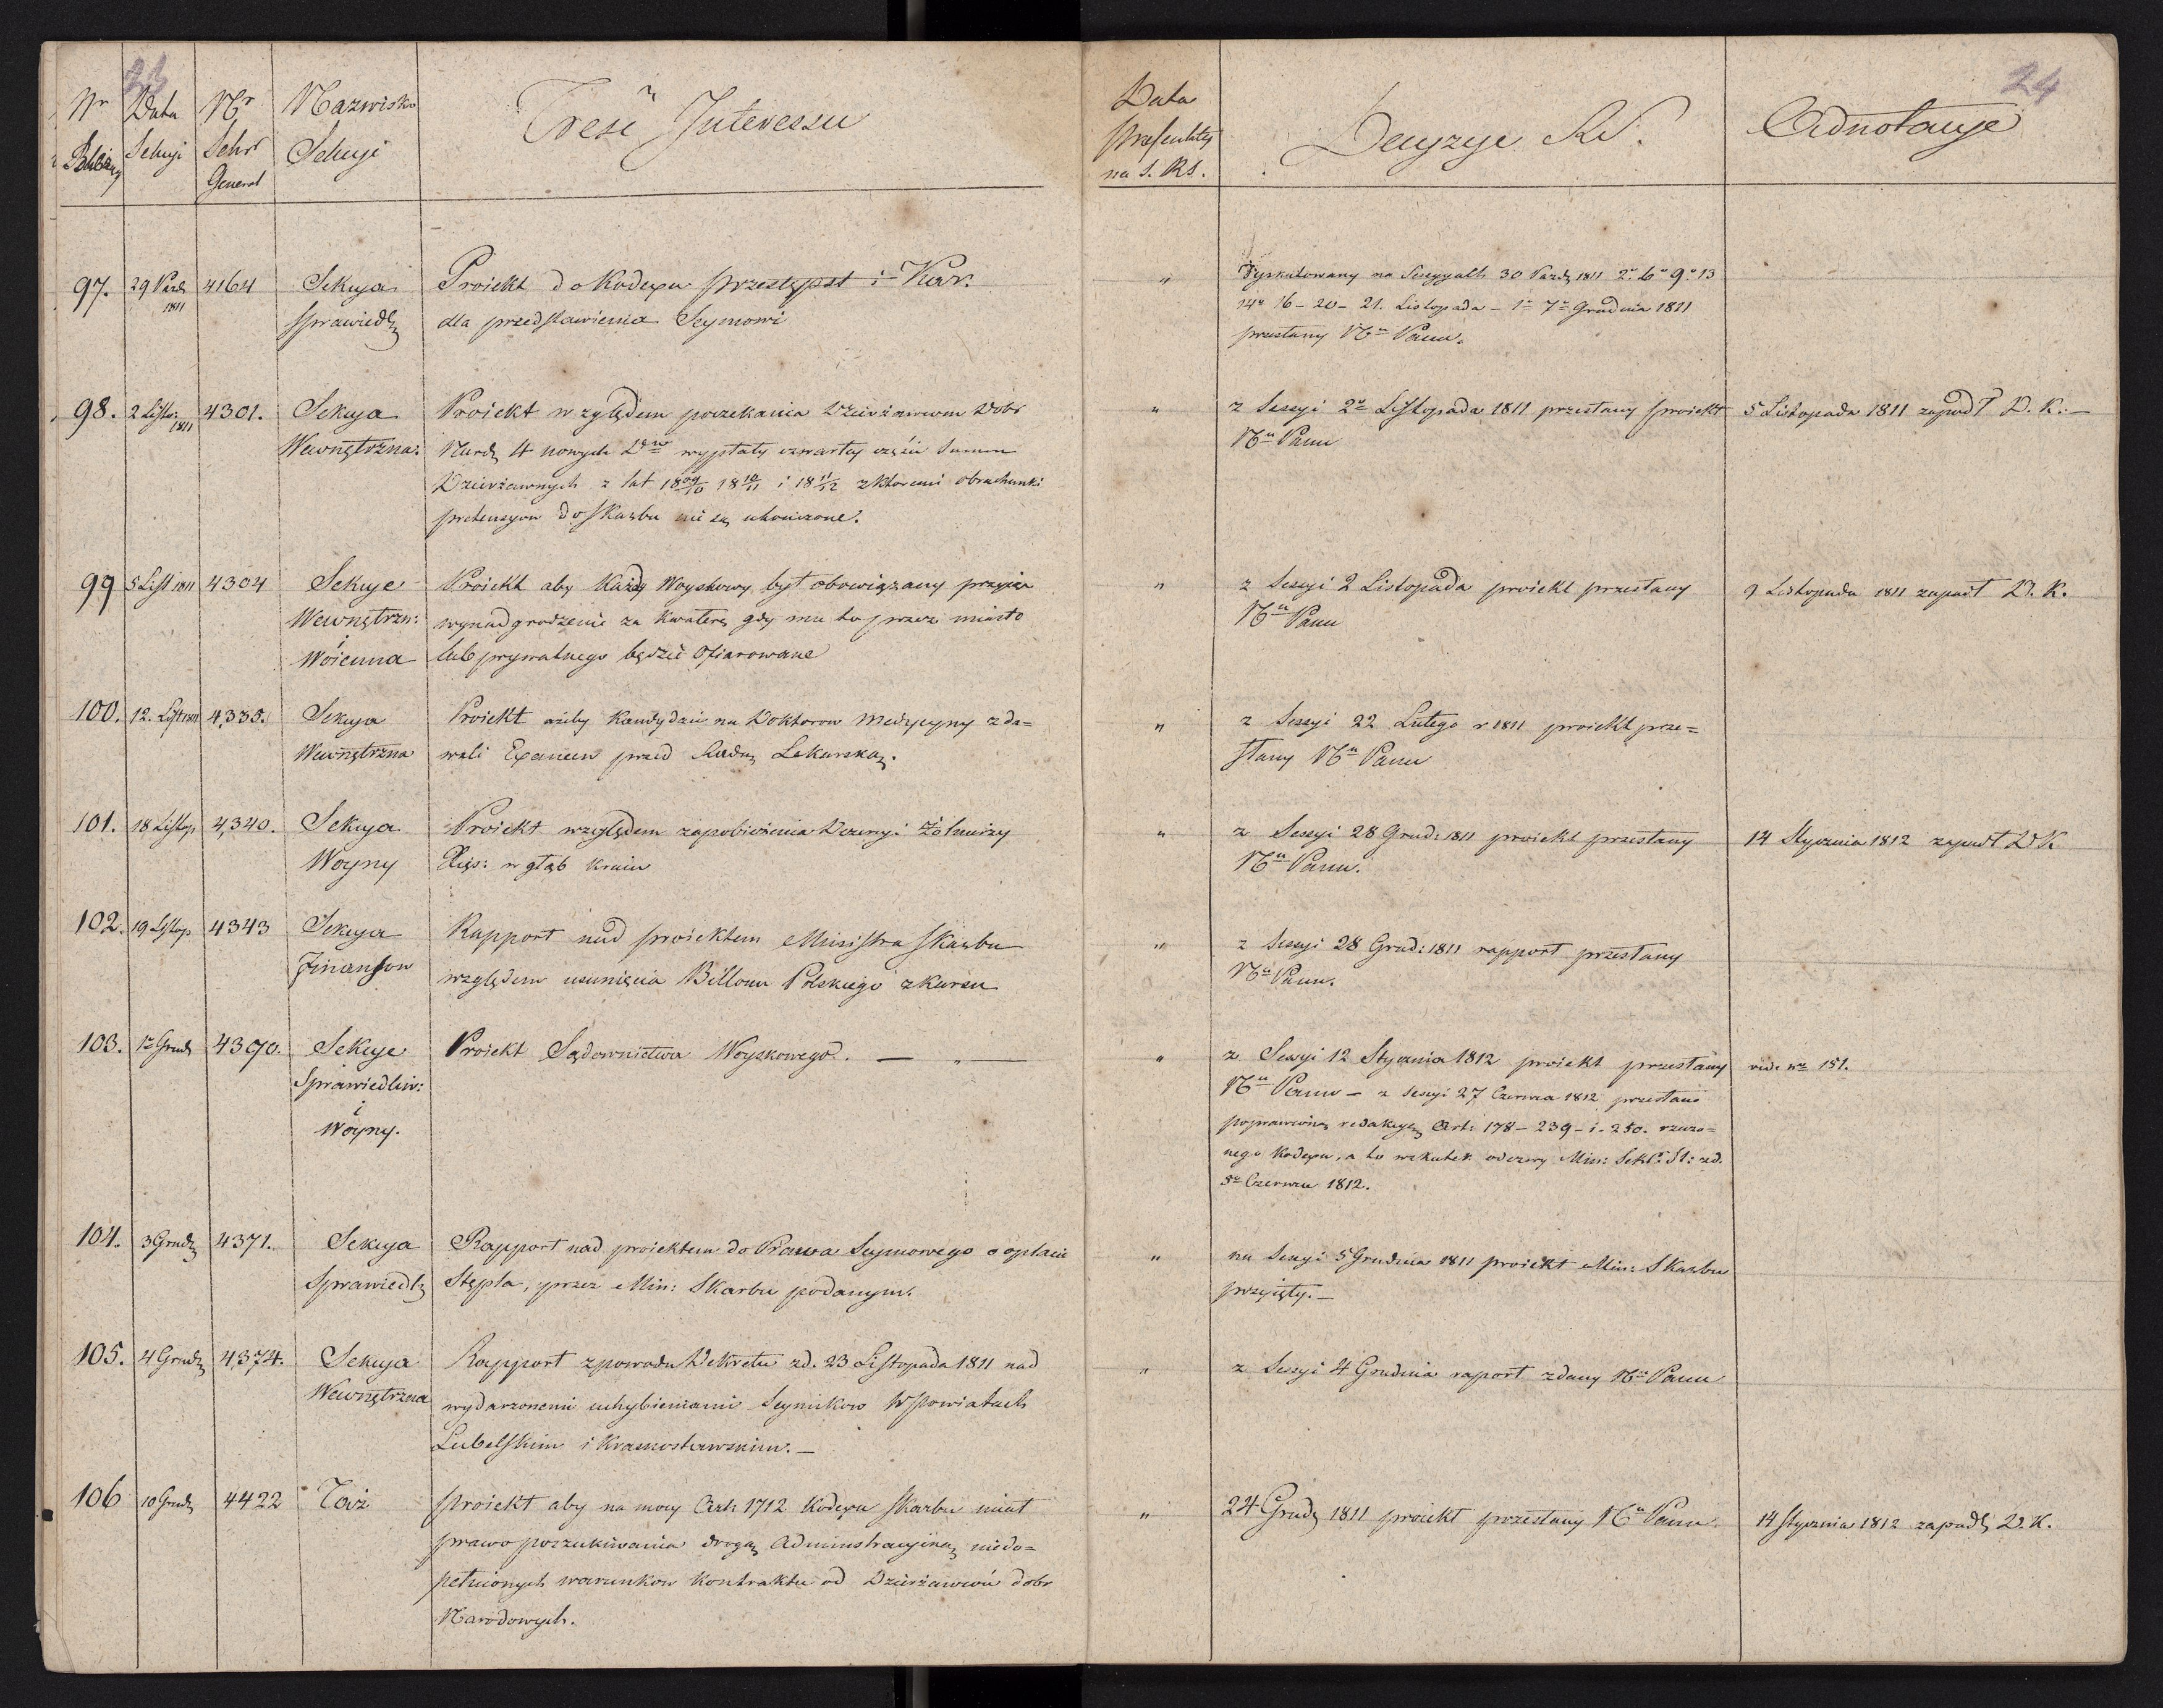 23
24
Nr Bieżący
Data Sekcyi
Nr Sekr General
Nazwisko Sekcyi
Treść Interessu
Data Presentaty na S. RS.
Decyzye RS.
Adnotacye
97. 29 Pazdz 1811 4164 Sekcya Sprawiedl
Proiekt do Kodexu przestępst i Kar.
dla przedstawienia Seymowi
" Dyskutowany na Sessyach 30 Pazdz 1811 2o 6o 9o 13
14o 16 - 20 - 21. Listopada - 1o 7o Grudnia 1811
przesłany Nu Panu.
98. 2 Listo: 1811 4301. Sekcya Wewnętrzna:
Proiekt względem poczekania Dzierżawcom Dobr
Narod 4 nowych wypłaty czwartey części Summ
Dzierżawnych z lat 1809/10 1810/11 i 1811/12 z ktoremi obrachunki
pretensyow do Skarbu nie są ukończone.
" z Sessyi 2o Listopada 1811 przesłany proiekt
Nu Panu
5 Listopada 1811 zapadł D. K. —
99 5 List 1811 4304 Sekcye Wewnętrzn: i Woienna
Proiekt aby każdy Woyskowy był obowiązany przyiąć
wynadgrodzenie za kwaterę gdy mu to przez miasto
lub prywatnego będzie ofiarowane
" z Sessyi 2 Listopada proiekt przesłany
Nu Panu
9 Listopada 1811 zapadł D. K.
100. 12. List 1811 4,335. Sekcya Wewnętrzna
Proiekt ażeby Kandydaci na Doktorow Medycyny zda=
wali Examen przed Radą Lekarską.
" z Sessyi 22 Lutego r 1811 proiekt prze=
słany Nu Panu
101. 18 Listop 4,340. Sekcya Woyny
Proiekt względem zapobieżenia Dezercyi Żołnierzy
Xięs: w głąb kraiu
" z Sessyi 28 Grud: 1811 proiekt przesłany
Nu Panu.
14 Stycznia 1812 zapadł D K
102. 19 Listop 4343 Sekcya Finansow
Rapport nad proiektem Ministra Skarbu
względem usunięcia Billonu Polskiego z kursu
" z Sessyi 28 Grud: 1811 rapport przesłany
Nu Panu.
103. 1o Grud 4390. Sekcye Sprawiedliw: i Woyny.
Proiekt Sądownictwa Woyskowego. — " —
" z Sessyi 12 Stycznia 1812 proiekt przesłany
Nu Panu — z Sessyi 27 Czerwca 1812 przesłano
poprawioną redakcyą Art: 178 - 239 - i - 250. rzeczo=
nego Kodexu, a to wskutek odezwy Min: Sekr: St: z d.
5o Czerwca 1812.
vide No 151.
104. 3 Grudz 4371. Sekcya Sprawiedl
Rapport nad proiektem do Prawa Seymowego o opłacie
Stępla, przez Min: Skarbu podanym.
" na Sessyi 5 Grudnia 1811 proiekt Min: Skarbu
przyięty. —
105. 4 Grudz 4,374. Sekcya Wewnętrzna
Rapport z powodu Dekretu z d. 23 Listopada 1811 nad
wydarzonemi uchybieniami Seymikow w Powiatach
Lubelskim i Krasnostawskim. —
" z Sessyi 4 Grudnia raport zdany Nu Panu
106 10 Grudz 4422 Taż
Proiekt aby na mocy Art: 1712 Kodexu Skarbu miał
prawo poszukiwania drogą Administracyiną niedo=
pełnionych warunkow Kontraktu od Dzierżawców dobr
Narodowych.
" 24 Grudz 1811 proiekt przesłany Nu Panu
14 Stycznia 1812 zapadł D. K.